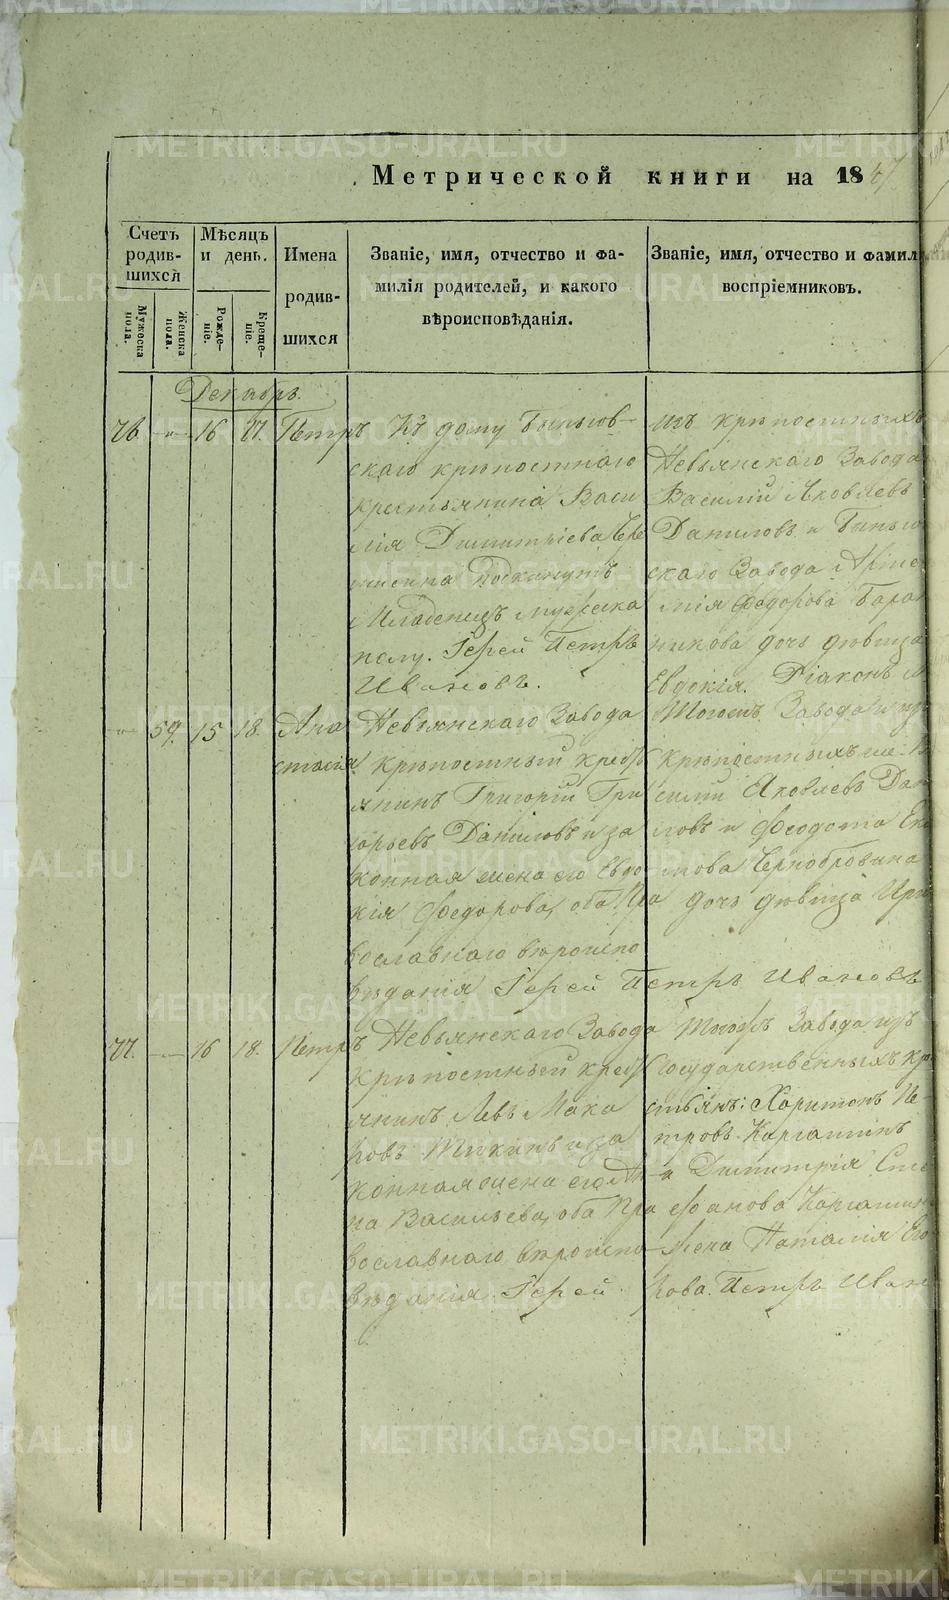 METRIKI.GASO-URAL.RU
Метрической книги на 1847
Счетъ родив-шихся
Мѣсяцъ и день.
Имена родив-шихся
Званіе, имя, отчество и фа-
милія родителей, и какого
вѣроисповѣданія.
Званіе, имя, отчество и фамил
воспріемниковъ.
Мужеска пола.
Женска пола.
Рожде-ніе.
Креще-ніе.
Декабрь.
76. " 16 17. Петръ
Къ дому Быньгов-
скаго крѣпостнаго
крестьянина Васи
лія Димитріева
подкинутъ
Младенецъ мужеска
полу. Іерей Петръ
Ивановъ.
изъ крѣпостныхъ
Невьянскаго Завода
Василій Яковлевъ
Даниловъ и Быньго
скаго Завода Арте
мія Федорова Баран
никова дочь дѣвица
Евдокія. Діаконъ
" 59. 15 18. Ана
стасія
Невьянскаго Завода
крѣпостный крест
янинъ Григорій Гри
горьевъ Даниловъ и за
конная жена его Евдо
кія Федорова, оба Пра
вославнаго вѣроиспо
вѣданія Іерей Петръ Ивановъ
Тогожъ Завода изъ
крѣпостныхъ же: Ва
силій Яковлевъ Дан
ловъ и Феодота Еки
мова Чернобровина
дочь дѣвица Ири
77. " 16 18. Петръ
Невьянскаго Завода
крѣпостный крест
янинъ Левъ Мака
ровъ и за
конная жена его Ан
на Васильева, оба Пра
вославнаго вѣроиспо
вѣданія. Іерей
Тогожъ Завода изъ
Государственныхъ кре
стьянъ: Харитонъ Пе-
тровъ Каргашинъ
и Димитрія Сте
фанова Каргашин
жена Наталія Его
рова. Петръ Иван